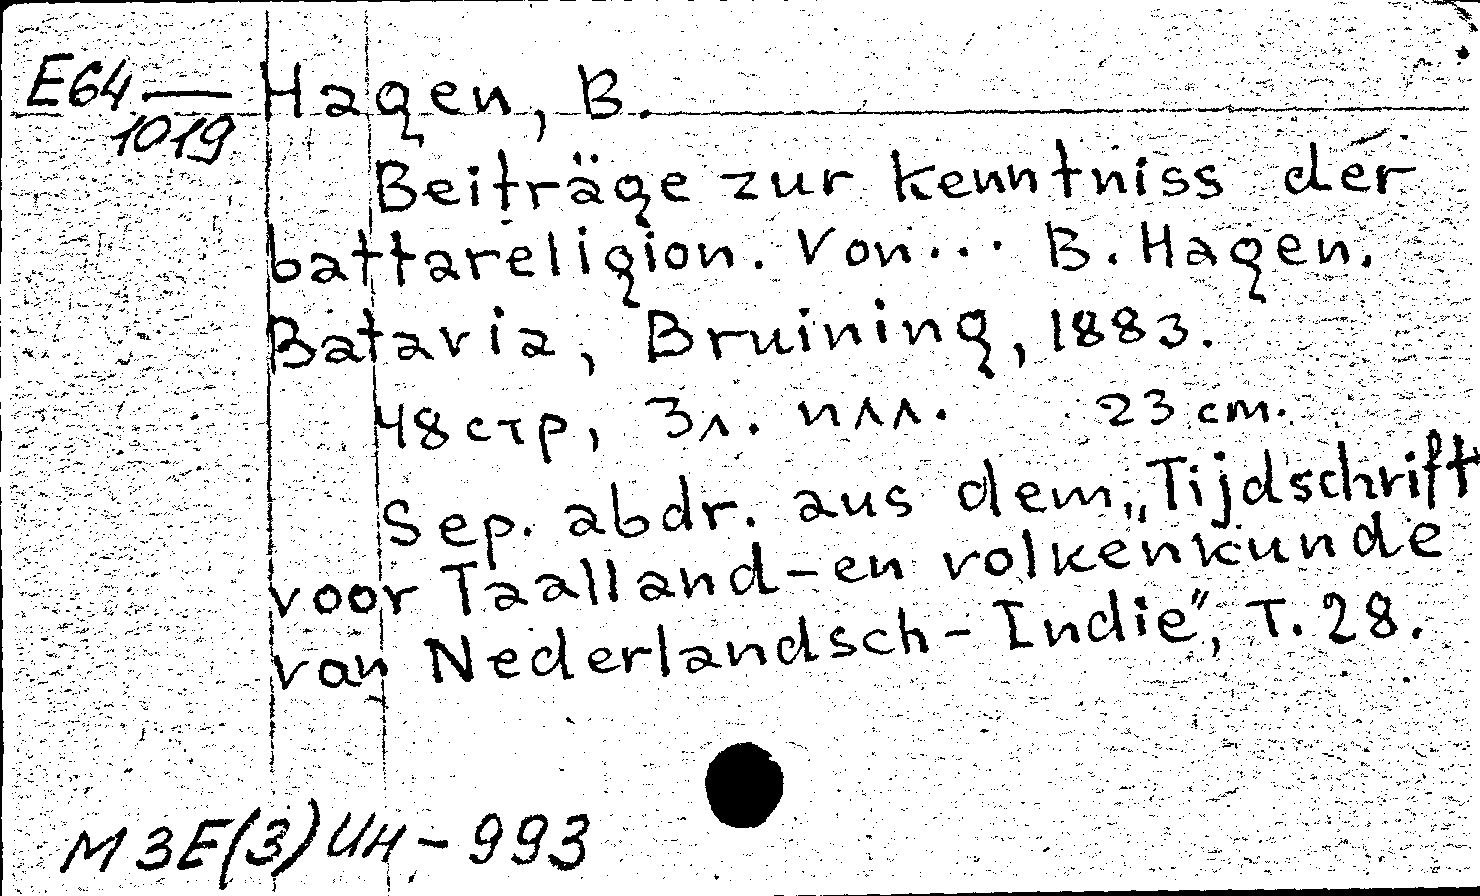 E64 — Hagen, B.
1019
Beiträge zur kenntniss der
battareligion. Von... B. Hagen.
Batavia, Bruining, 1883.
48 стр, 3 л. илл. 23 cm.
Sep. abdr. aus dem „Tijdschrift
voor Taalland-en volkenkunde
van Nederlandsch-Indie", T. 28.
МЗЕ(3)Ин-993